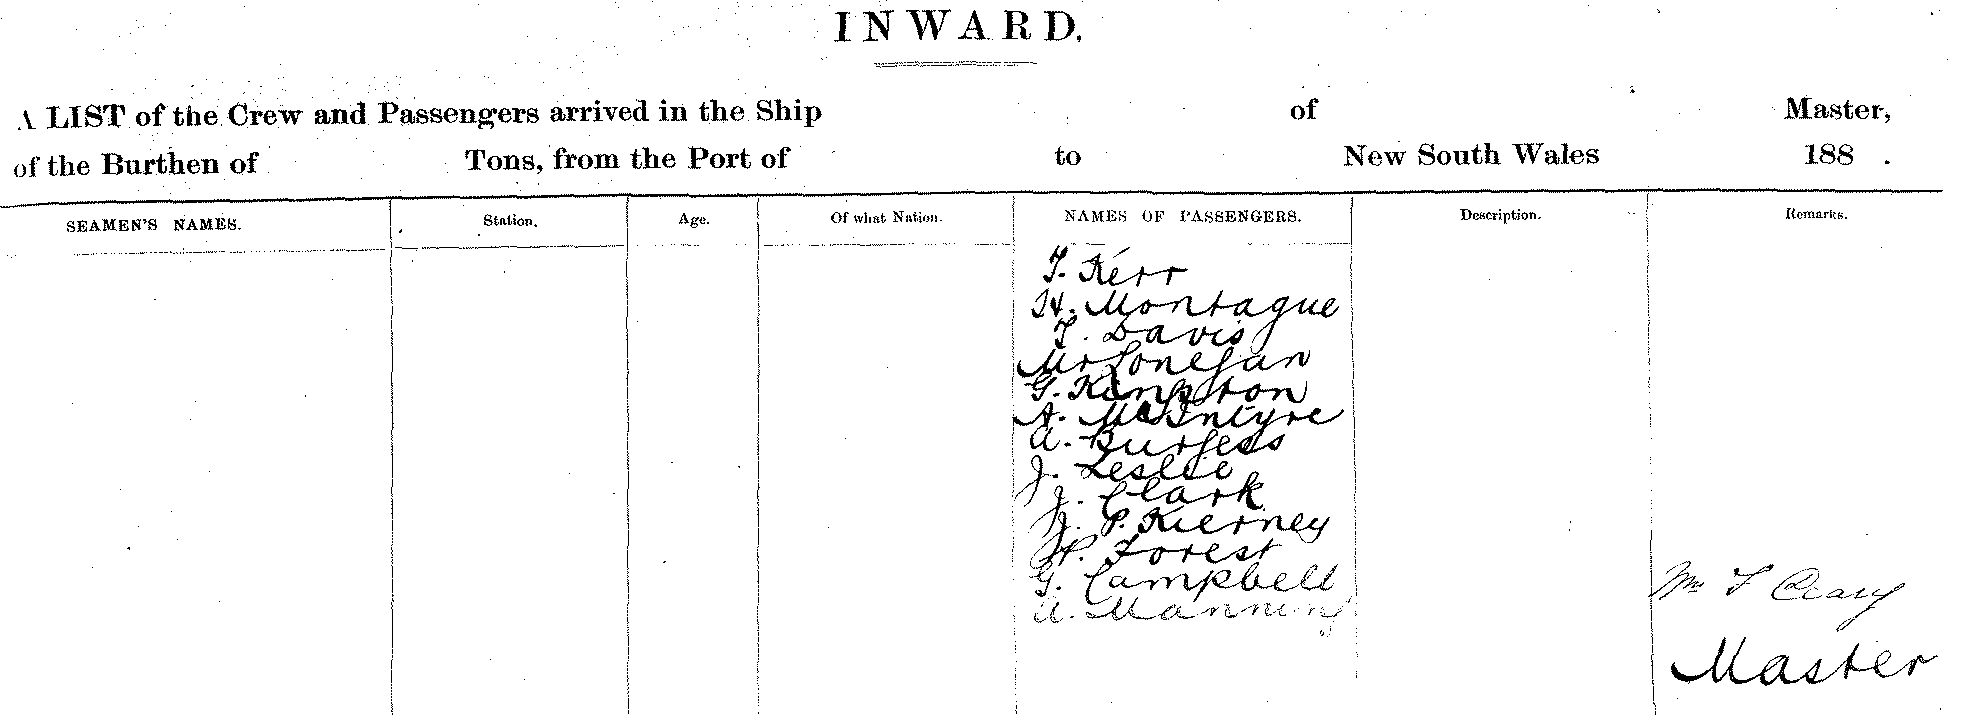 INWARD.
A LIST of the Crew and Passengers arrived in the Ship of Master,
of the Burthen of Tons, from the Port of to New South Wales 188 .
SEAMEN'S NAMES. Station. Age. Of what Nation. NAMES OF PASSENGERS. Description. Remarks.
T. Kerr
H. Montague
T. Davis
Mr Lonegan
G. Kingston
A. McIntyre
A. Burgess
J. Leslie
J. Clark
J. P. Kierney
H. Forest
G. Campbell
A. Manning
Wm F
Master